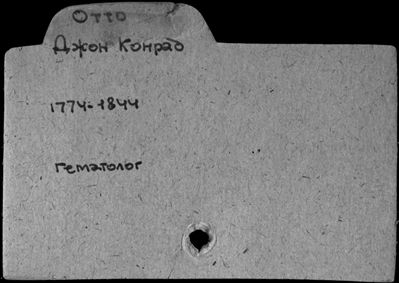 Отто
Джон Конрад
1774-1844
гематолог